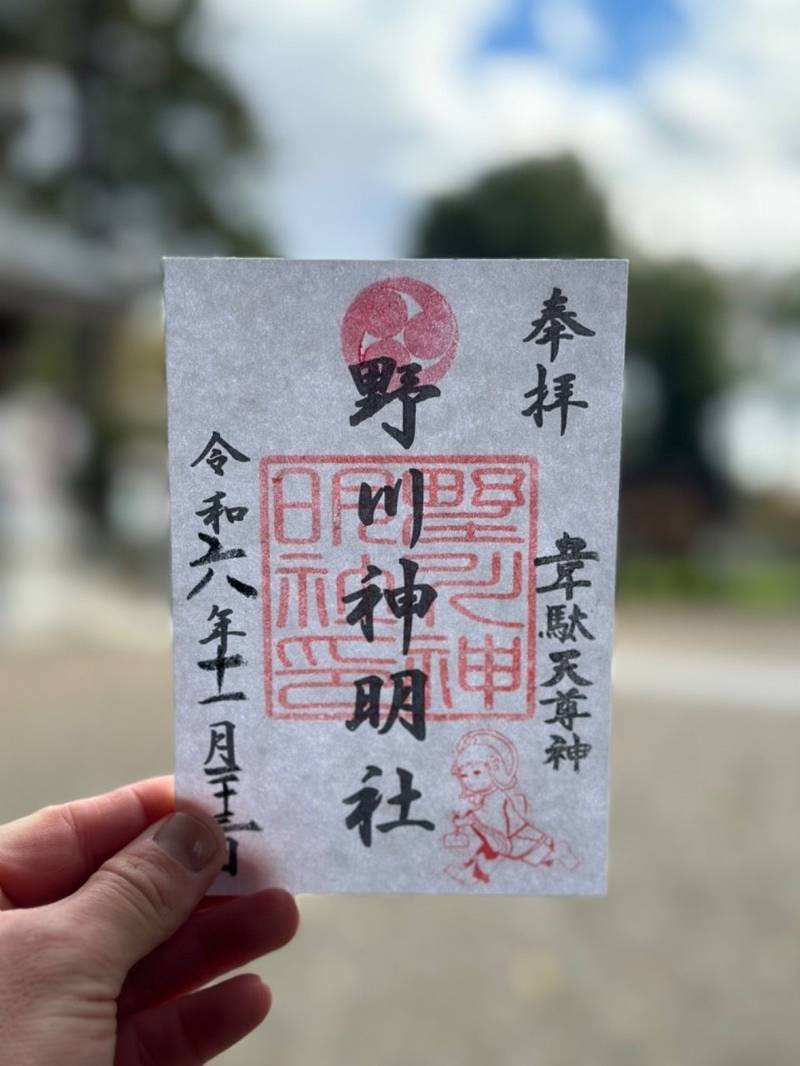 奉拝
韋駄天尊神
野川神明社
野川神明社印
令和六年十一月二十三日